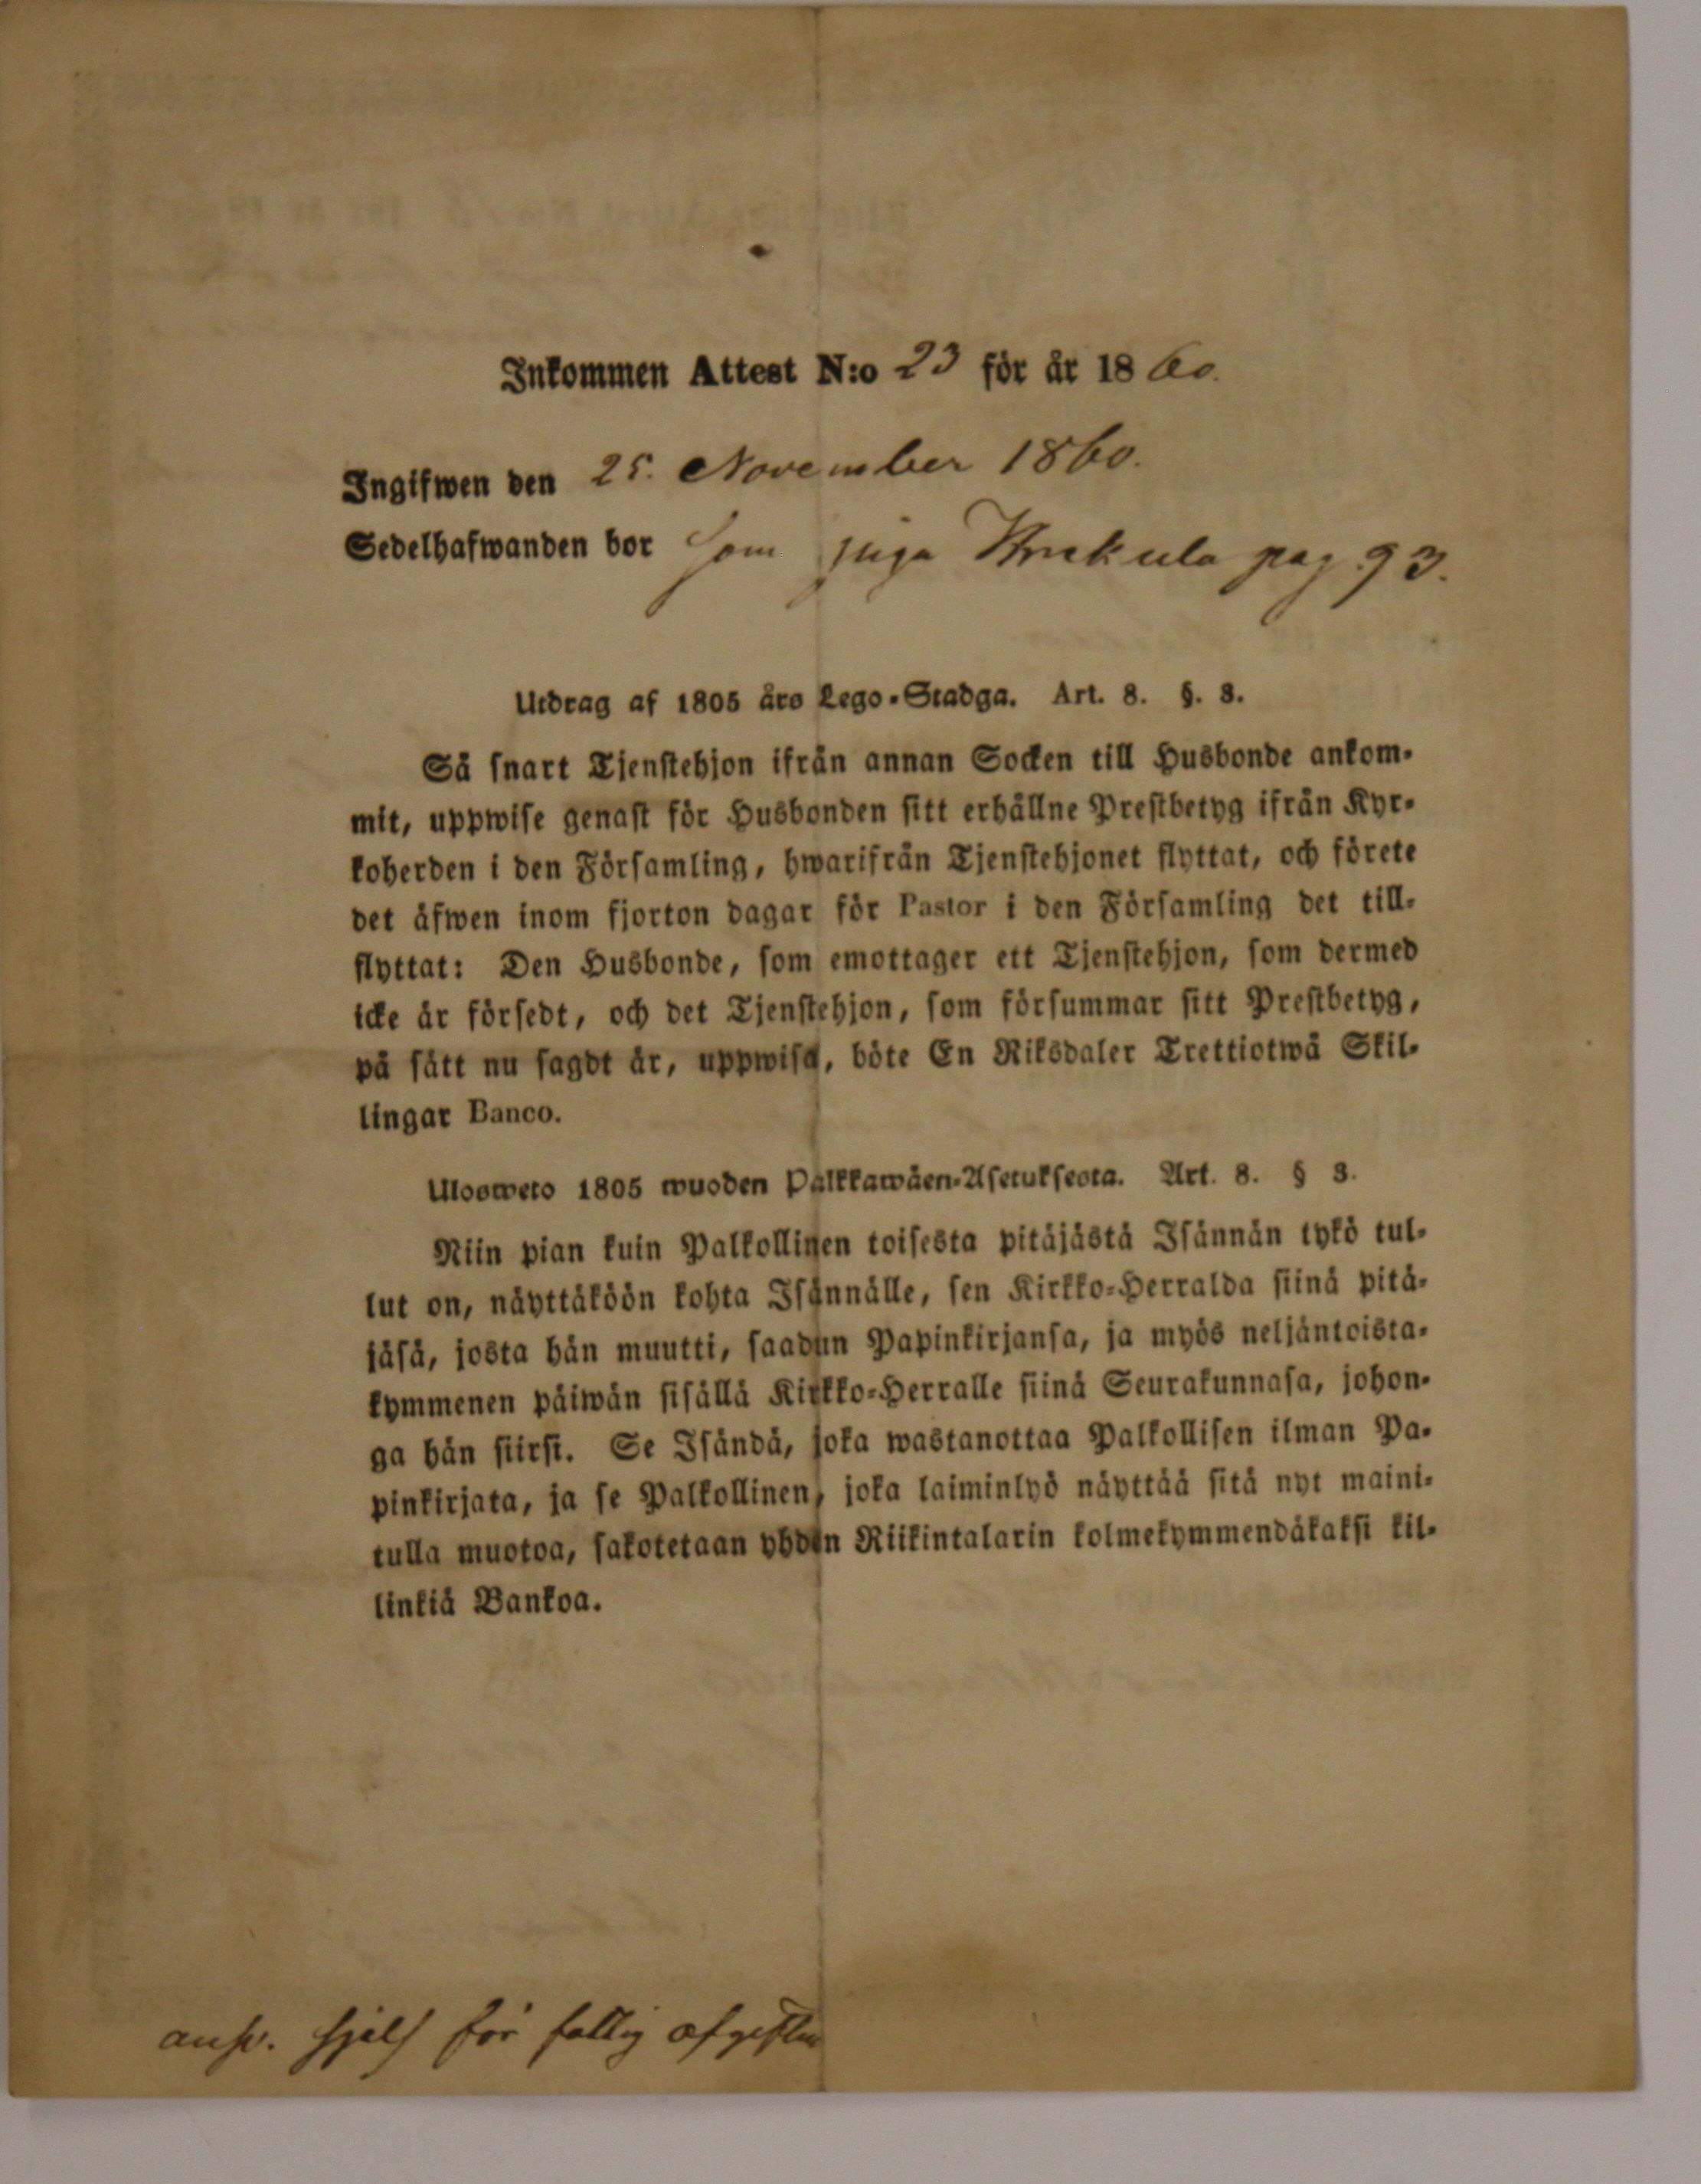 Inkommen Attest N:o 23 för år 1860.
Ingifwen den 25. November 1860.
Sedelhafwanden bor som piga pag. 93.
Utdrag af 1805 års Lego-Stadga. Art. 8. §. 3.
Så snart Tjenstehjon ifrån annan Socken till Husbonde ankom-
mit, uppwise genast för Husbonden sitt erhållne Prestbetyg ifrån Kyr-
koherden i den Församling, hwarifrån Tjenstehjonet flyttat, och förete
det äfwen inom fjorton dagar för Pastor i den Församling det till-
flyttat: Den Husbonde, som emottager ett Tjenstehjon, som dermed
icke är försedt, och det Tjenstehjon, som försummar sitt Prestbetyg,
på sätt nu sagdt är, uppwisa, böte En Riksdaler Trettiotwå Skil-
lingar Banco.
Ulosweto 1805 wuoden Palkkawäen-Asetuksesta. Art. 8. § 3.
Niin pian kuin Palkollinen toisesta pitäjästä Isännän tykö tul-
lut on, näyttäköön kohta Isännälle, sen Kirkko-Herralda siinä pitä-
jäsä, josta hän muutti, saadun Papinkirjansa, ja myös neljäntoista-
kymmenen päiwän sisällä Kirkko-Herralle siinä Seurakunnasa, johon-
ga hän siirsi. Se Isändä, joka wastanottaa Palkollisen ilman Pa-
pinkirjata, ja se Palkollinen, joka laiminlyö näyttää sitä nyt maini-
tulla muotoa, sakotetaan yhden Riikintalarin kolmekymmendäkaksi kil-
linkiä Bankoa.
answ. sjelf för fattig afgiften